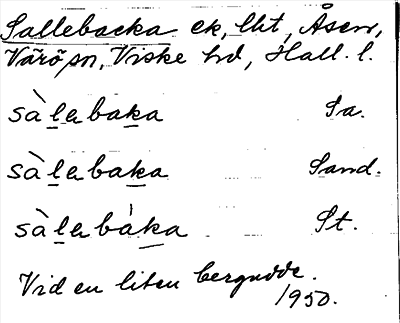 Sallebacka ck, lht, Åsen,
Värö sn, Viske hd, Hall. l.
sàlebaka Sa.
sàlebaka Sand.
sàlebàka St.
Vid en liten bergudde.
1950.